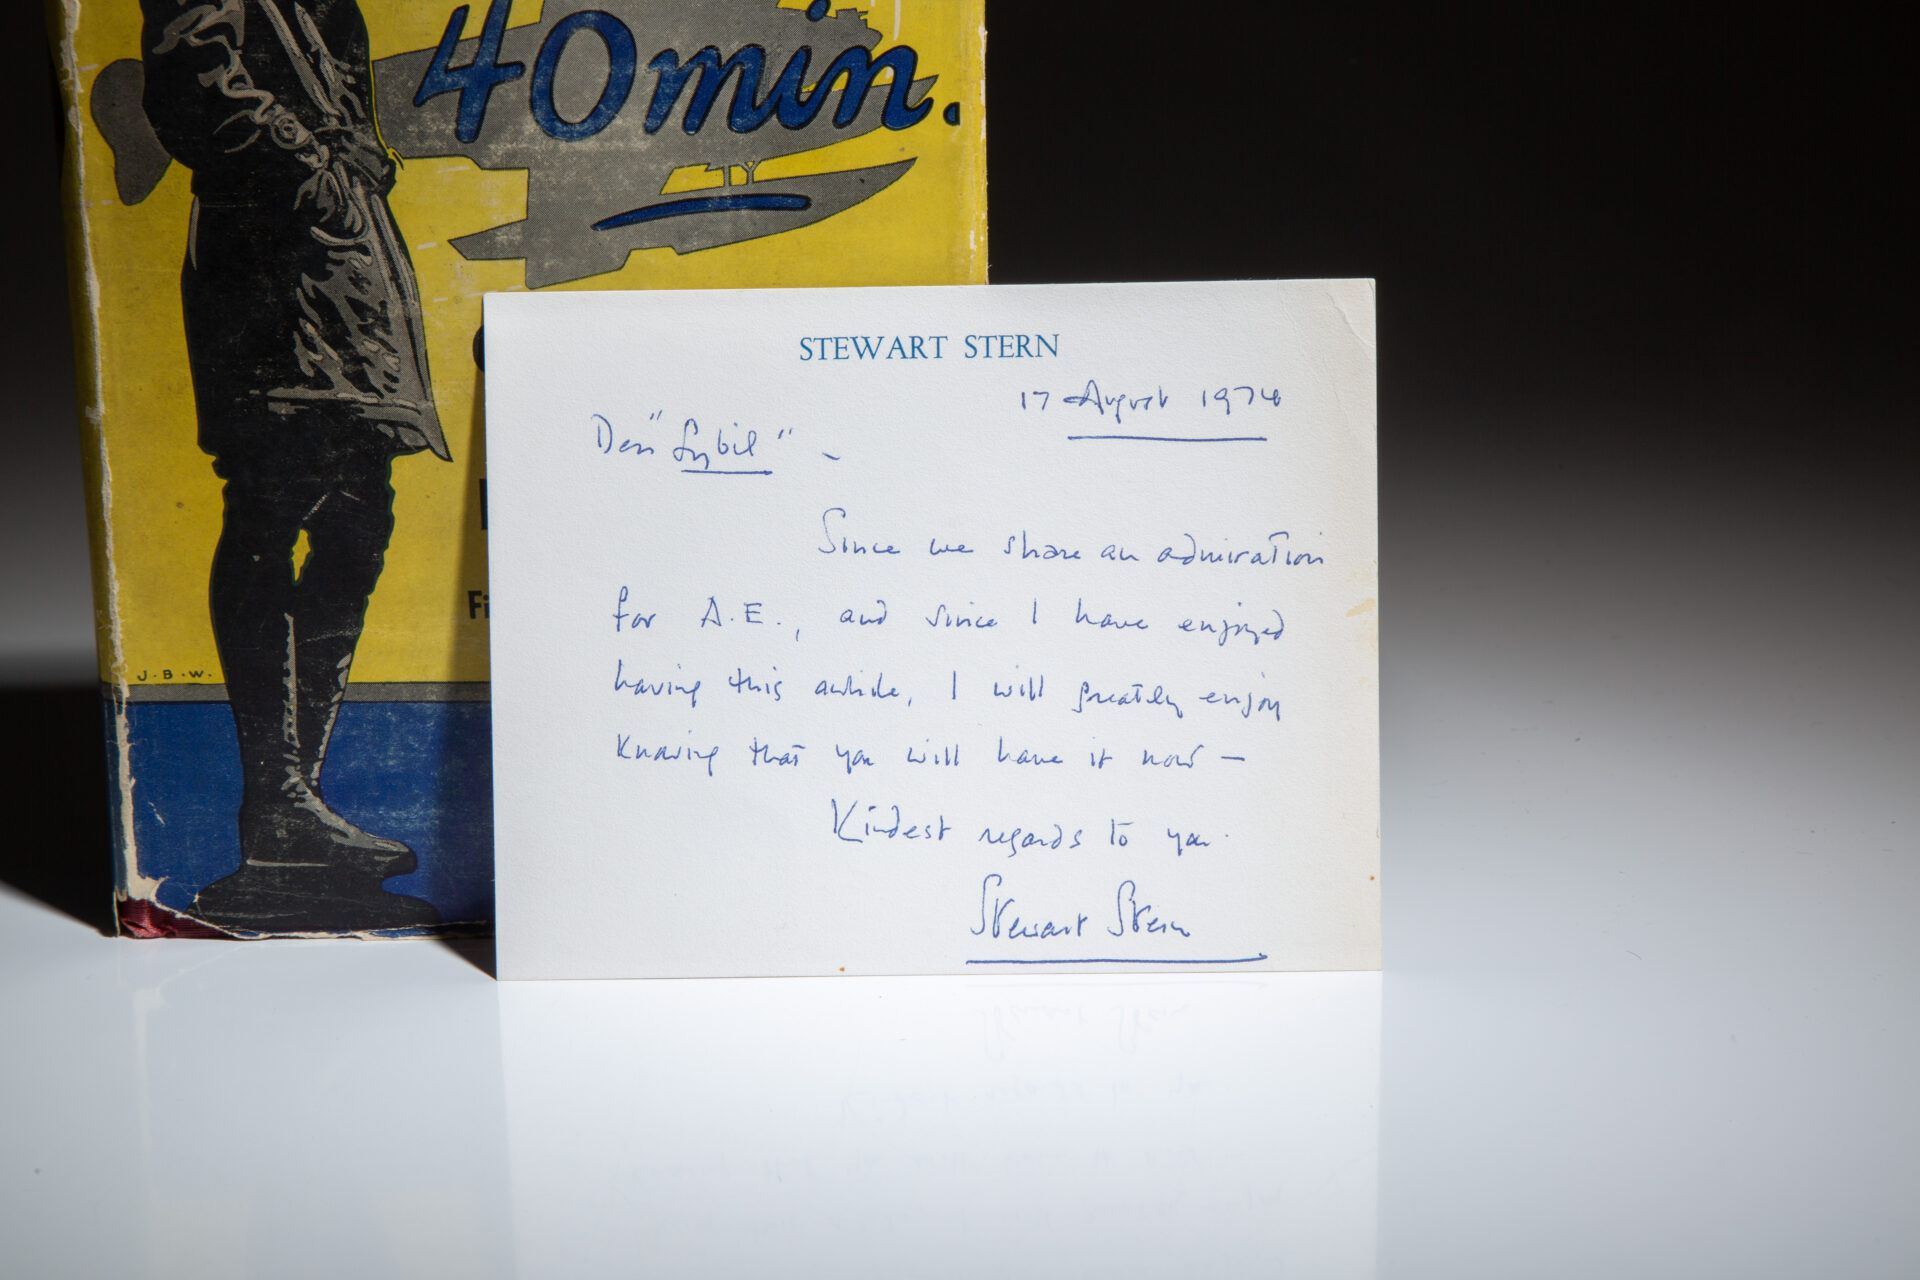 40 min.
Fi
J.B.W.
STEWART STERN
17 August 1974
Dear "Sybil" –
Since we share an admiration
for A.E., and since I have enjoyed
having this awhile, I will greatly enjoy
knowing that you will have it now –
Kindest regards to you.
Stewart Stern